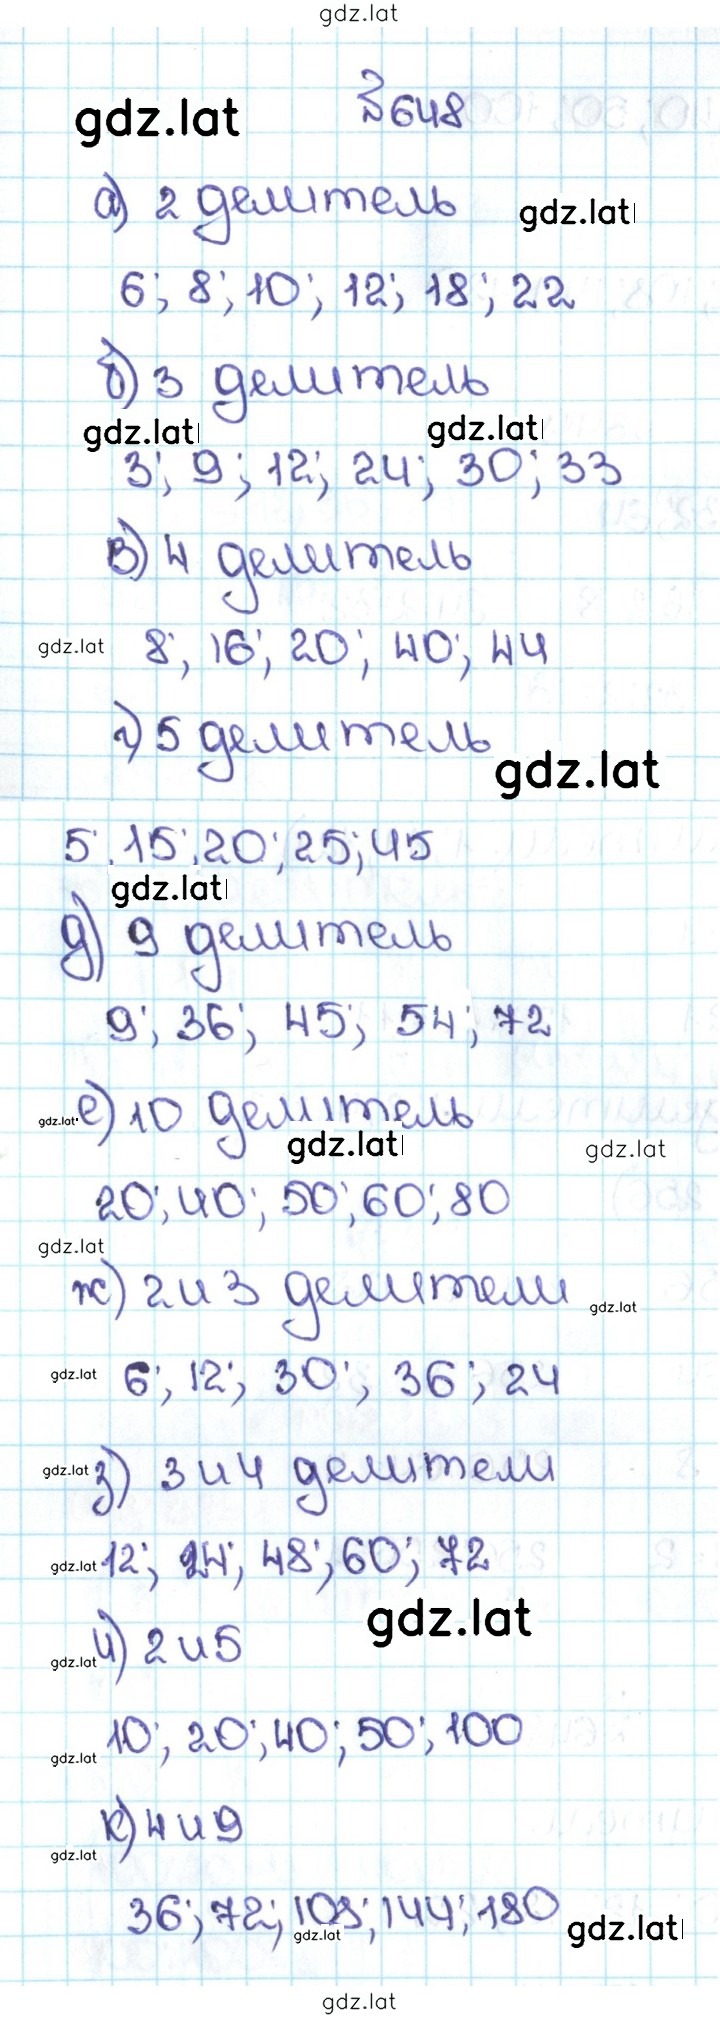 gdz.lat
№648
gdz.lat
а) 2 делитель
gdz.lat
6; 8; 10; 12; 18; 22
б) 3 делитель
gdz.lat gdz.lat
3; 9; 12; 24; 30; 33
в) 4 делитель
gdz.lat 8; 16; 20; 40; 44
г) 5 делитель
gdz.lat
5; 15; 20; 25; 45
gdz.lat
д) 9 делитель
9; 36; 45; 54; 72
gdz.lat е) 10 делитель
gdz.lat gdz.lat
20; 40; 50; 60; 80
gdz.lat
ж) 2 и 3 делители
gdz.lat
gdz.lat 6; 12; 30; 36; 24
gdz.lat з) 3 и 4 делители
gdz.lat 12; 24; 48; 60; 72
gdz.lat
gdz.lat и) 2 и 5
10; 20; 40; 50; 100
gdz.lat
к) 4 и 9
gdz.lat
36; 72; 108; 144; 180
gdz.lat gdz.lat
gdz.lat